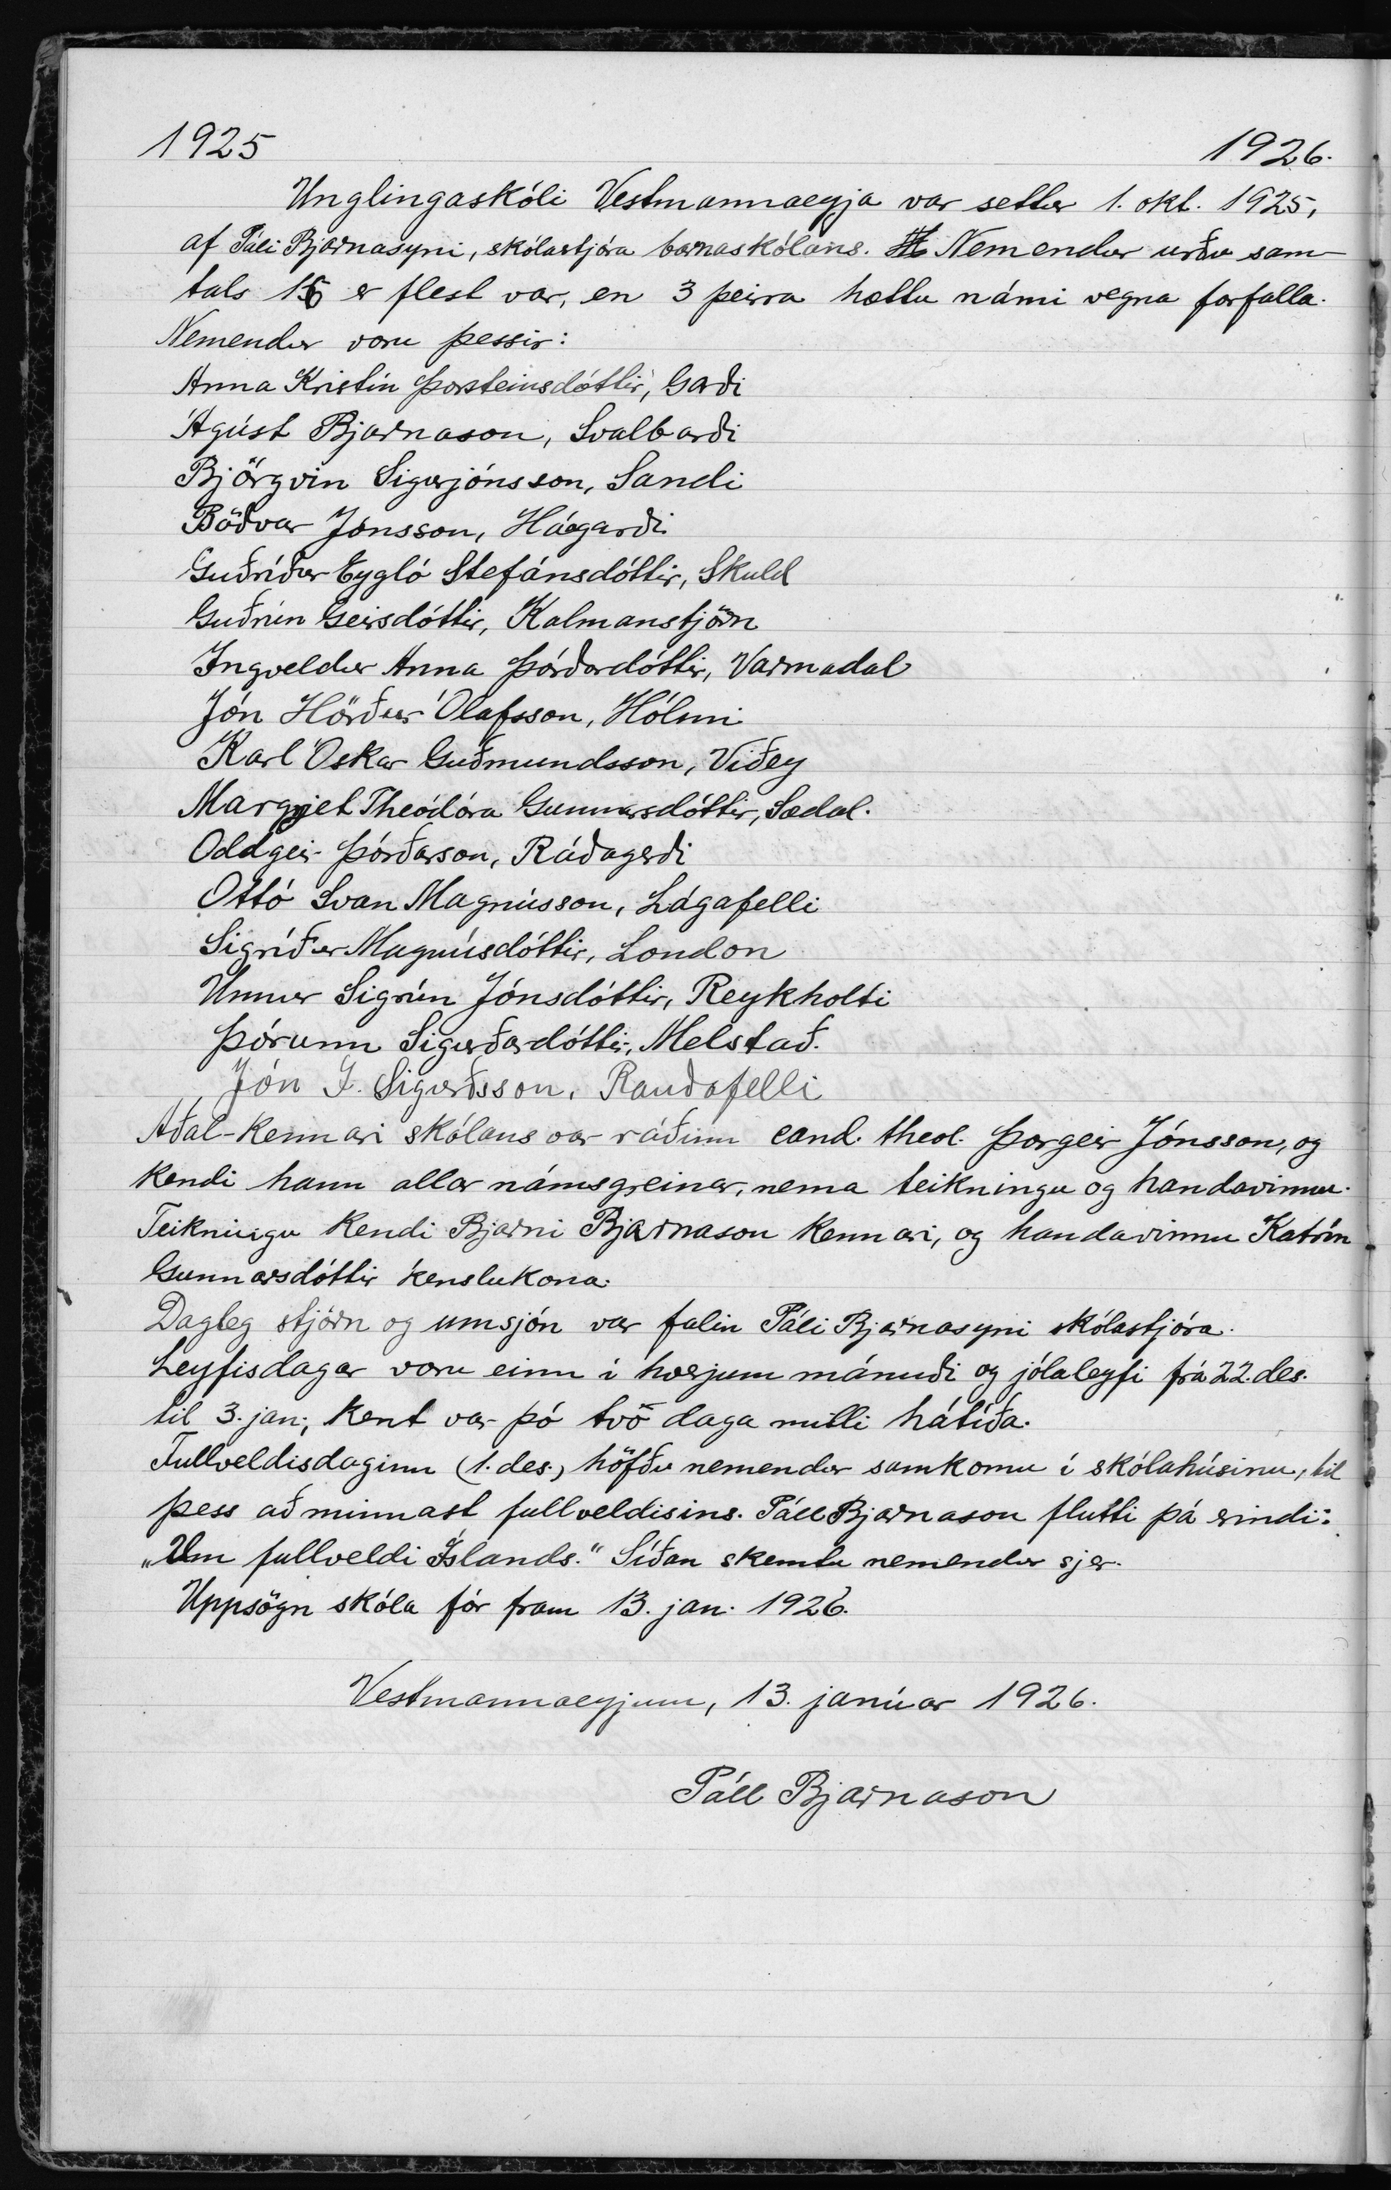 1925 1926.
Unglingaskóli Vestmannaeyja var settur 1. okt. 1925,
af Páli Bjarnasyni, skólastjóra barnaskólans. Nemendur urðu sam-
tals 16 er flest var, en 3 þeirra hættu námi vegna forfalla.
Nemendur voru þessir:
Anna Kristín Þorsteinsdóttir, Garði
Ágúst Bjarnason, Svalbarði
Björgvin Sigurjónsson, Sandi
Böðvar Jónsson, Háagarði
Guðríður Eygló Stefánsdóttir, Skuld
Guðrún Geirsdóttir, Kalmanstjörn
Ingveldur Anna Þórðardóttir, Varmadal
Jón Hörður Ólafsson, Hólmi
Karl Óskar Guðmundsson, Viðey
Margrjet Theódóra Gunnarsdóttir, Sædal.
Oddgeir Þórðarson, Ráðagerði
Ottó Svan Magnússon, Lágafelli
Sigríður Magnúsdóttir, London
Unnur Sigrún Jónsdóttir, Reykholti
Þórunn Sigurðardóttir, Melstað.
Jón I. Sigurðsson, Rauðafelli
Aðal-kennari skólans var ráðinn cand. theol. Þorgeir Jónsson, og
kendi hann allar námsgreinar, nema teikningu og handavinnu.
Teikningu kendi Bjarni Bjarnason kennari, og handavinnu Katrín
Gunnarsdóttir kenslukona.
Dagleg stjórn og umsjón var falin Páli Bjarnasyni skólastjóra.
Leyfisdagar voru einn í hverjum mánuði og jólaleyfi frá 22. des.
til 3. jan.; kent var þó tvö daga milli hátíða.
Fullveldisdaginn (1. des.) höfðu nemendur samkomu í skólahúsinu, til
þess að minnast fullveldisins. Páll Bjarnason flutti þá erindi:
„Um fullveldi Íslands." Síðan skemtu nemendur sjer.
Uppsögn skóla fór fram 13. jan. 1926.
Vestmannaeyjum, 13. janúar 1926.
Páll Bjarnason